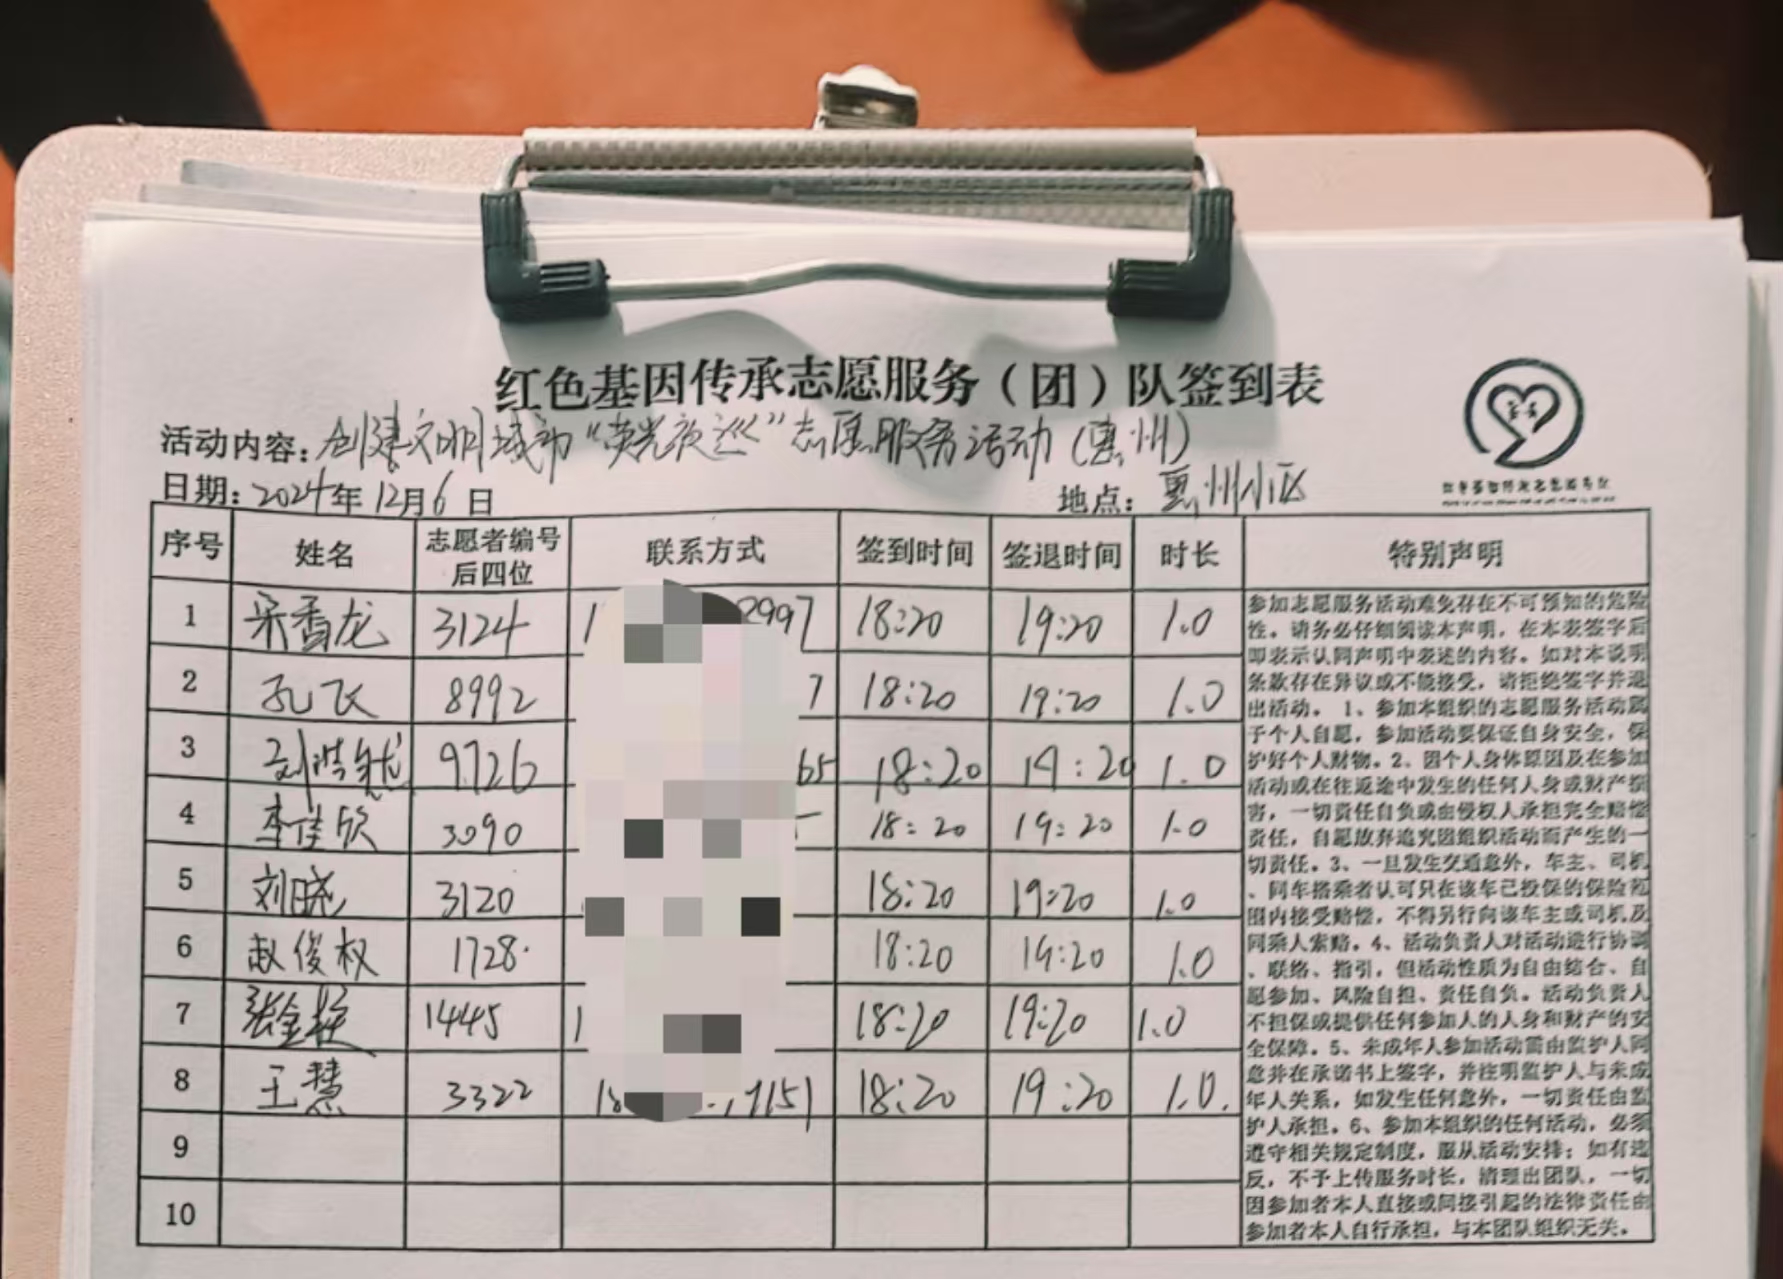 红色基因传承志愿服务（团）队签到表
活动内容：创建文明城市“荧光夜巡”志愿服务活动（惠州）
日期：2024年12月6日 地点：惠州小区
序号 姓名 志愿者编号后四位 联系方式 签到时间 签退时间 时长 特别声明
1 宋香龙 3124 1 2997 18:20 19:20 1.0
2 孔飞 8992 7 18:20 19:20 1.0
3 刘浩 9726 65 18:20 19:20 1.0
4 李佳欣 3090 18:20 19:20 1.0
5 刘晓 3120 18:20 19:20 1.0
6 赵俊权 1728 18:20 19:20 1.0
7 张金 1445 1 18:20 19:20 1.0
8 王慧 3322 18 1151 18:20 19:20 1.0
9
10
参加志愿服务活动难免存在不可预知的危险
性。请务必仔细阅读本声明，在本表签字后
即表示认同声明中表述的内容。如对本说明
条款存在异议或不能接受，请拒绝签字并退
出活动。 1、参加本组织的志愿服务活动属
于个人自愿，参加活动要保证自身安全，保
护好个人财物。2、因个人身体原因及在参加
活动或在往返途中发生的任何人身或财产损
害，一切责任自负或由侵权人承担完全赔偿
责任，自愿放弃追究因组织活动而产生的一
切责任。3、一旦发生交通意外，车主、司机
、同车搭乘者认可只在该车已投保的保险范
围内接受赔偿，不得另行向该车主或司机及
同乘人索赔。4、活动负责人对活动进行协调
、联络、指引，但活动性质为自由结合、自
愿参加、风险自担、责任自负。活动负责人
不担保或提供任何参加人的人身和财产的安
全保障。5、未成年人参加活动需由监护人同
意并在承诺书上签字，并注明监护人与未成
年人关系，如发生任何意外，一切责任由监
护人承担。6、参加本组织的任何活动，必须
遵守相关规定制度，服从活动安排；如有违
反，不予上传服务时长，清理出团队，一切
因参加者本人直接或间接引起的法律责任由
参加者本人自行承担，与本团队组织无关。